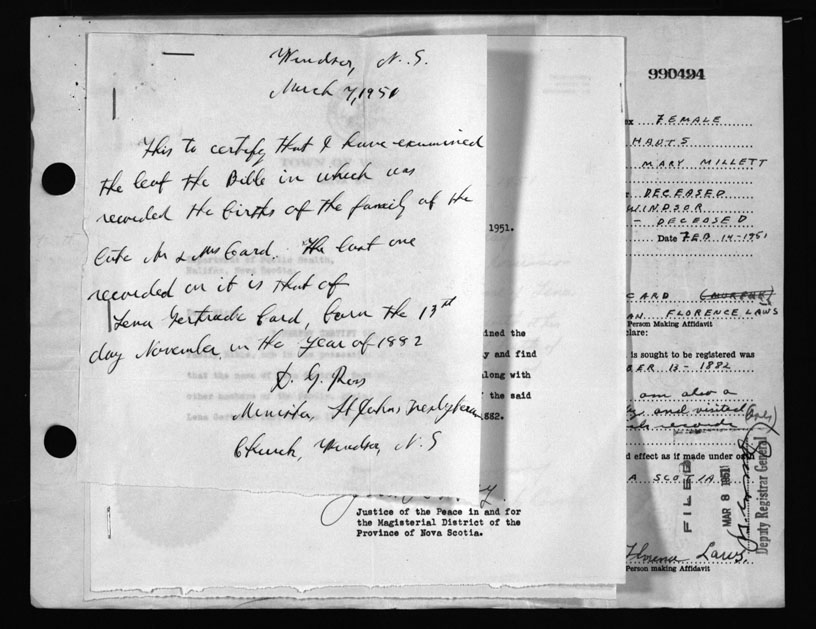 Windsor, N.S.
March 7, 1951
This to certify that I have examined
the leaf the Bible in which was
recorded the births of the family of the
late Mr & Mrs Card. The last one
recorded on it is that of
Lena Gertrude Card, born the 13th
day November, in the year of 1882
D. G. Ross
Minister, St Johns Presbyterian
Church, Windsor, N.S
1951.
ined the
y and find
long with
the said
882.
Justice of the Peace in and for
the Magisterial District of the
Province of Nova Scotia.
990494
ex FEMALE
HANTS
MARY MILLETT
DECEASED
WINDSOR
- DECEASED
Date FEB 14-1951
CARD
FLORENCE LAWS
Person Making Affidavit
lare:
is sought to be registered was
BER 13-1882
am also a
and visited
records
d effect as if made under oa
A SCOTIA
FILED
MAR 8 1951
Deputy Registrar General
Florence Laws
Person making Affidavit